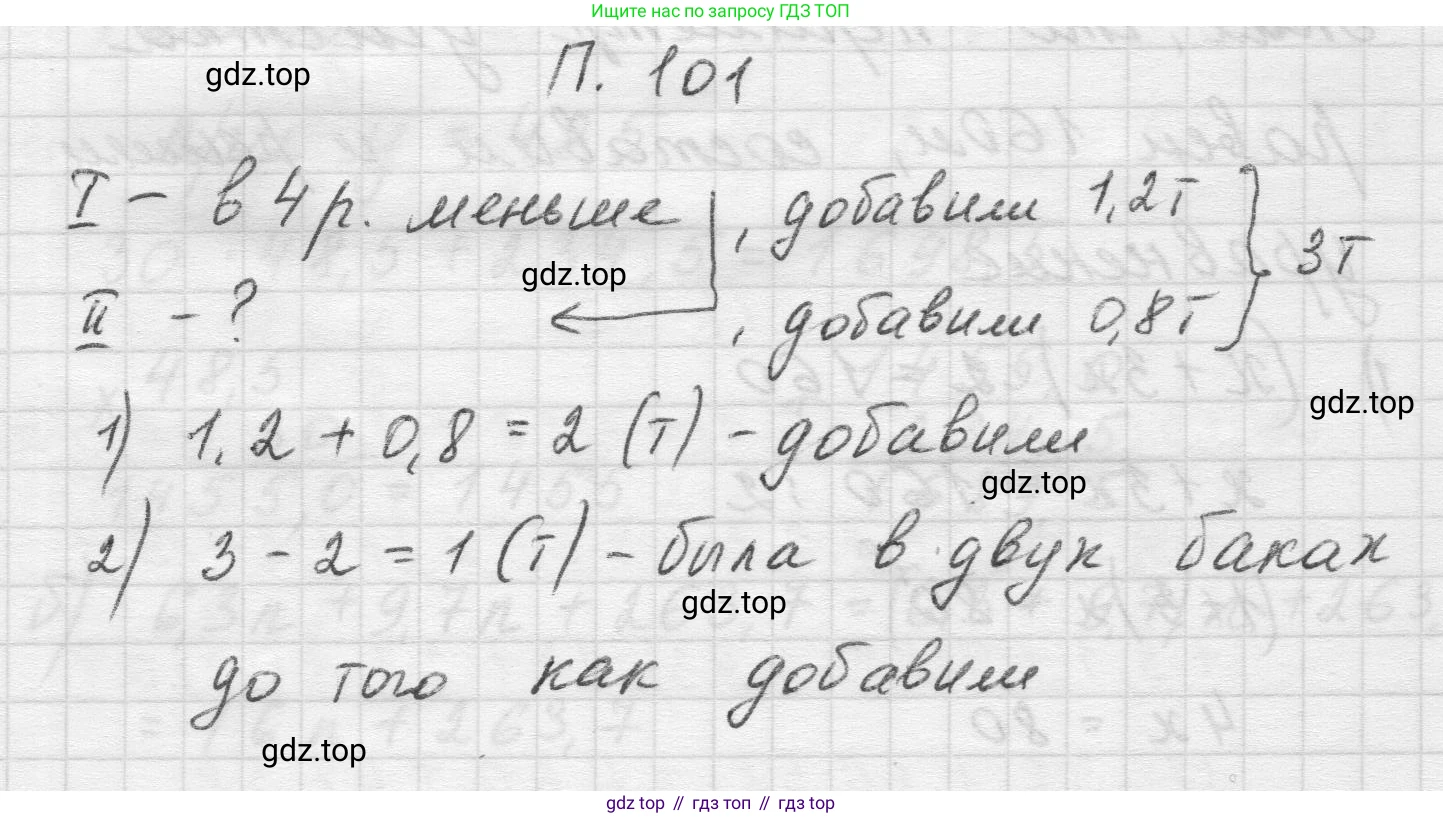 Ищите нас по запросу ГДЗ ТОП
gdz.top
П. 101
I – в 4 р. меньше, добавили 1,2 т
gdz.top
3 т
II – ?, добавили 0,8 т
gdz.top
1) 1,2 + 0,8 = 2 (т) – добавили
gdz.top
2) 3 – 2 = 1 (т) – была в двух баках
gdz.top
до того как добавили
gdz.top
gdz top // гдз топ // gdz top